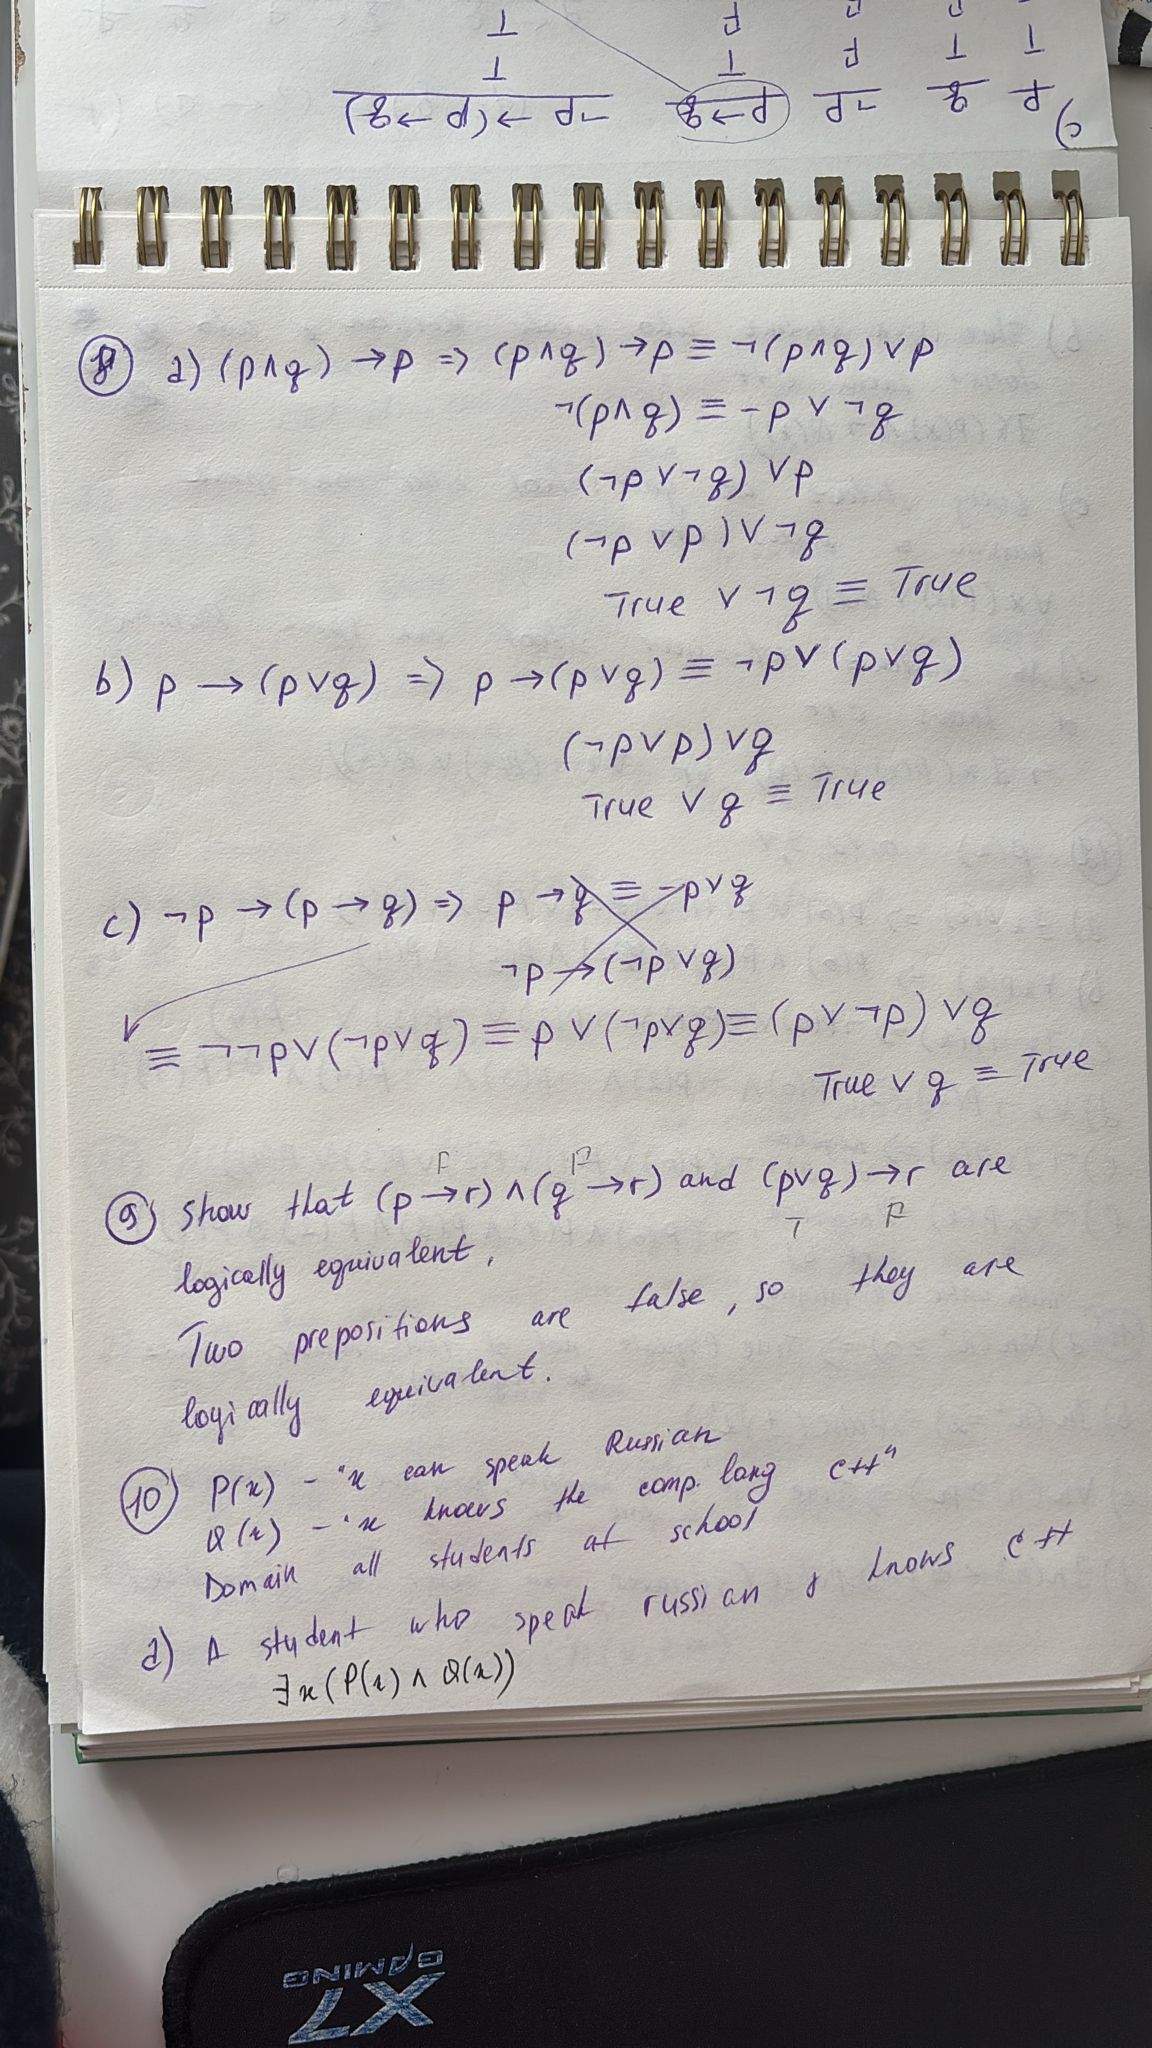 6)
p q ¬p p→q ¬p → (p→q)
T T F T T
F F T
⑧ a) (p∧q) → p => (p∧q) → p ≡ ¬(p∧q) ∨ p
¬(p∧q) ≡ -p ∨ ¬q
(¬p ∨ ¬q) ∨ p
(¬p ∨ p) ∨ ¬q
True ∨ ¬q ≡ True
b) p → (p∨q) => p → (p∨q) ≡ ¬p∨(p∨q)
(¬p∨p) ∨q
True ∨ q ≡ True
c) ¬p → (p → q) => p → q ≡ -p∨q
¬p → (¬p ∨q)
≡ ¬¬p∨(¬p∨q) ≡ p ∨(¬p∨q) ≡ (p∨¬p) ∨q
True ∨ q ≡ True
F F
⑨ show that (p → r) ∧ (q → r) and (p∨q) → r are
T F
logically equivalent.
Two prepositions are false, so they are
logically equivalent.
⑩ P(x) - "x can speak Russian
Q(x) - "x knows the comp. lang C++"
Domain all students at school
a) A student who speak russian & knows C++
∃x(P(x) ∧ Q(x))
X7
GAMING